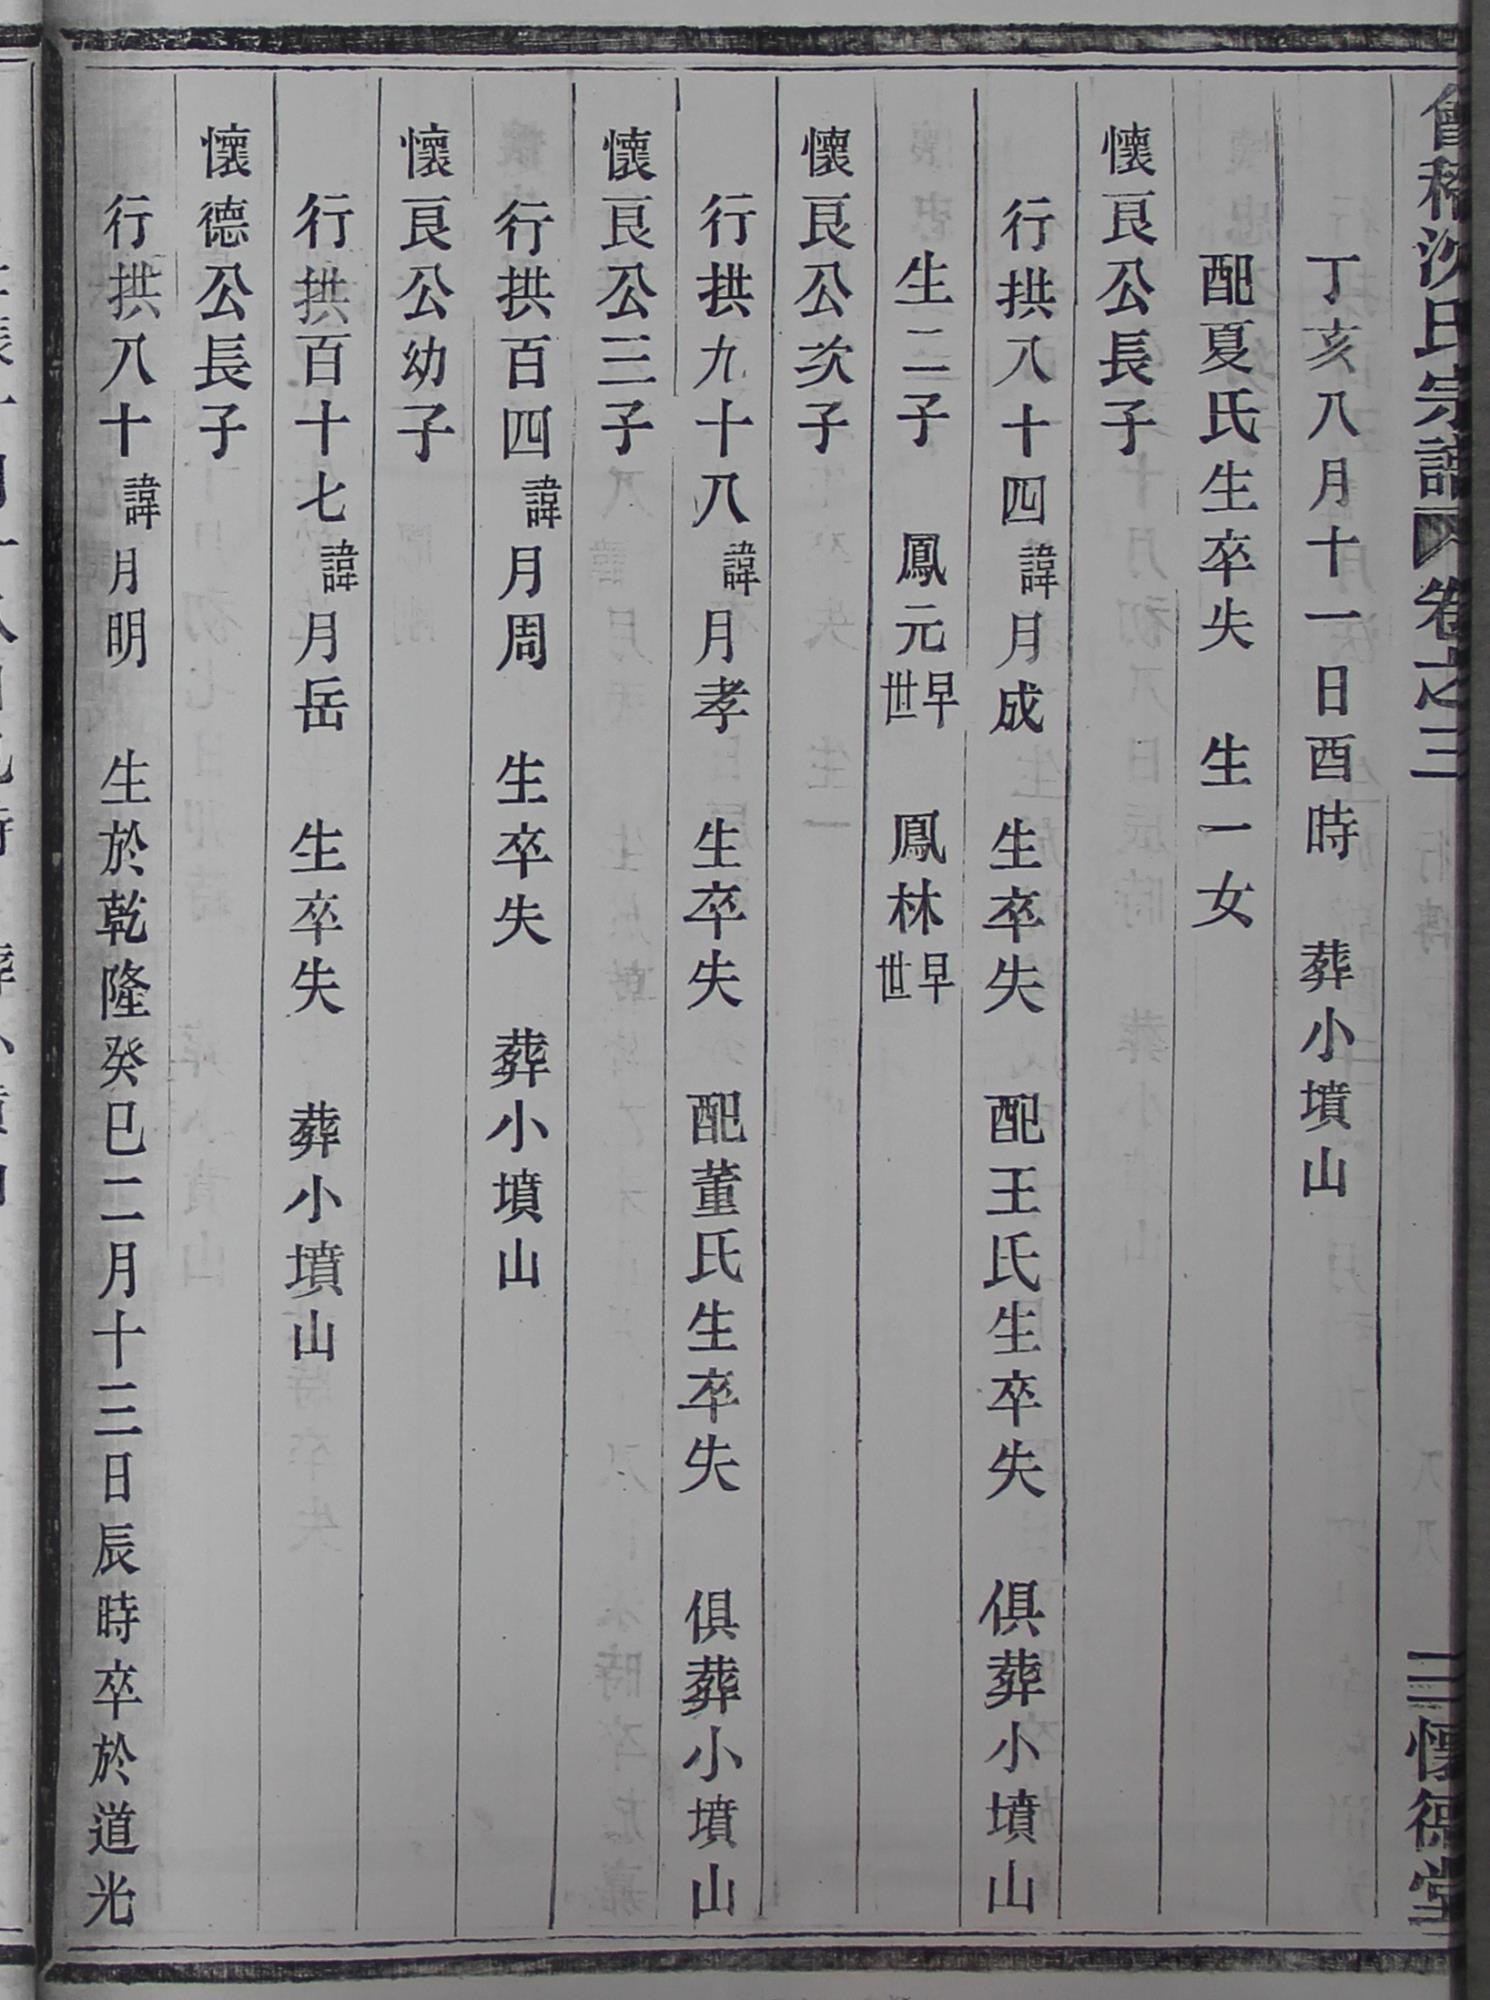 會稽沈氏宗譜 卷之三
三 懷德堂
丁亥八月十一日酉時 葬小墳山
配夏氏生卒失 生一女
懷良公長子
行拱八十四諱月成 生卒失 配王氏生卒失 俱葬小墳山
生二子 鳳元早世 鳳林早世
懷良公次子
行拱九十八諱月孝 生卒失 配董氏生卒失 俱葬小墳山
懷良公三子
行拱百四諱月周 生卒失 葬小墳山
懷良公幼子
行拱百十七諱月岳 生卒失 葬小墳山
懷德公長子
行拱八十諱月明 生於乾隆癸巳二月十三日辰時卒於道光